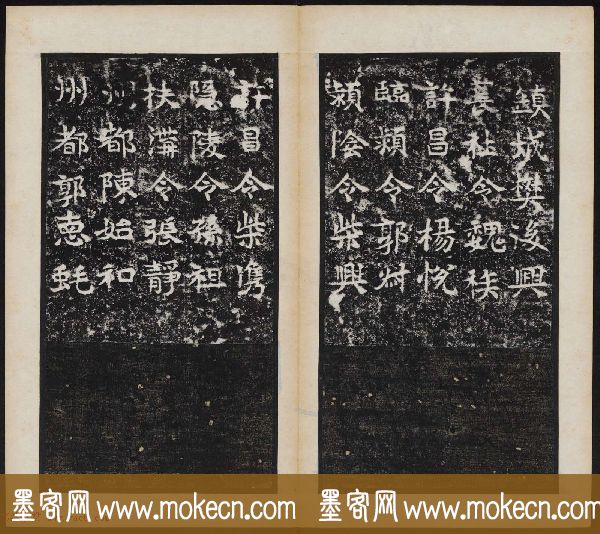 鎮城樊浚興
襄社令魏祑
許昌令楊悅
臨潁令郭
潁陰令柴興
許昌令柴儁
隱陵令孫祖
扶溝令張靜
州都陳始和
州都郭惠
墨客网 www.mokecn.com 墨客网 www.mokecn.com